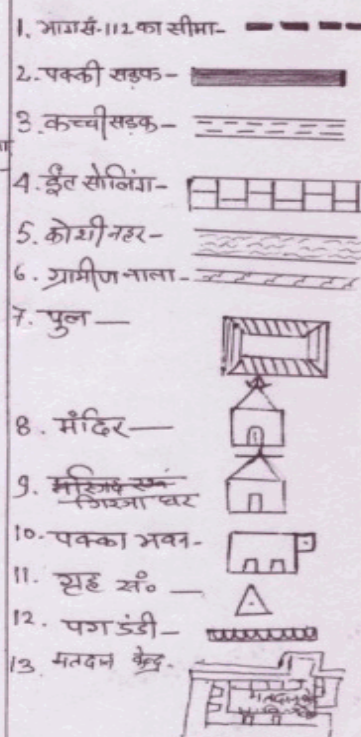 1. भाग सं-112 का सीमा-
2. पक्की सड़क-
3. कच्ची सड़क-
4. ईंट सोलिंग-
5. कोशी नहर-
6. ग्रामीण नाला-
7. पुल —
8. मंदिर —
9. मस्जिद एवं
गिरजा घर
10. पक्का भवन-
11. गृह सं० —
12. पगडंडी-
13 मतदान केन्द्र-
मतदान